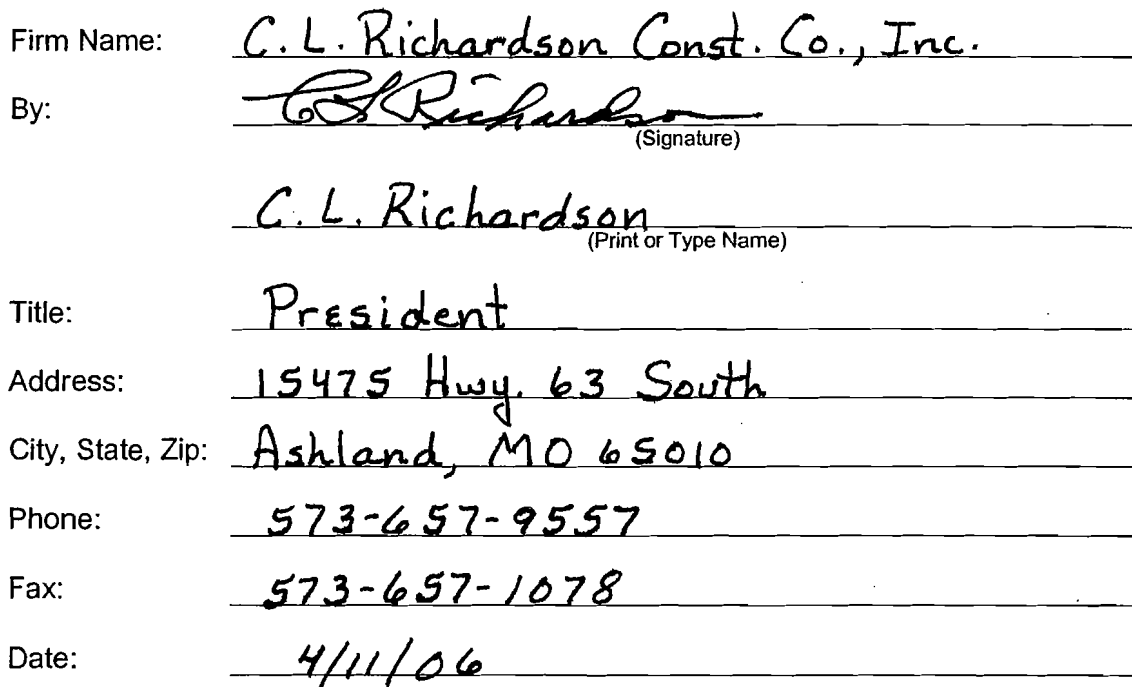 Firm Name: C. L. Richardson Const. Co., Inc.
By: CL Richardson
(Signature)
C. L. Richardson
(Print or Type Name)
Title: President
Address: 15475 Hwy. 63 South
City, State, Zip: Ashland, MO 65010
Phone: 573-657-9557
Fax: 573-657-1078
Date: 4/11/06